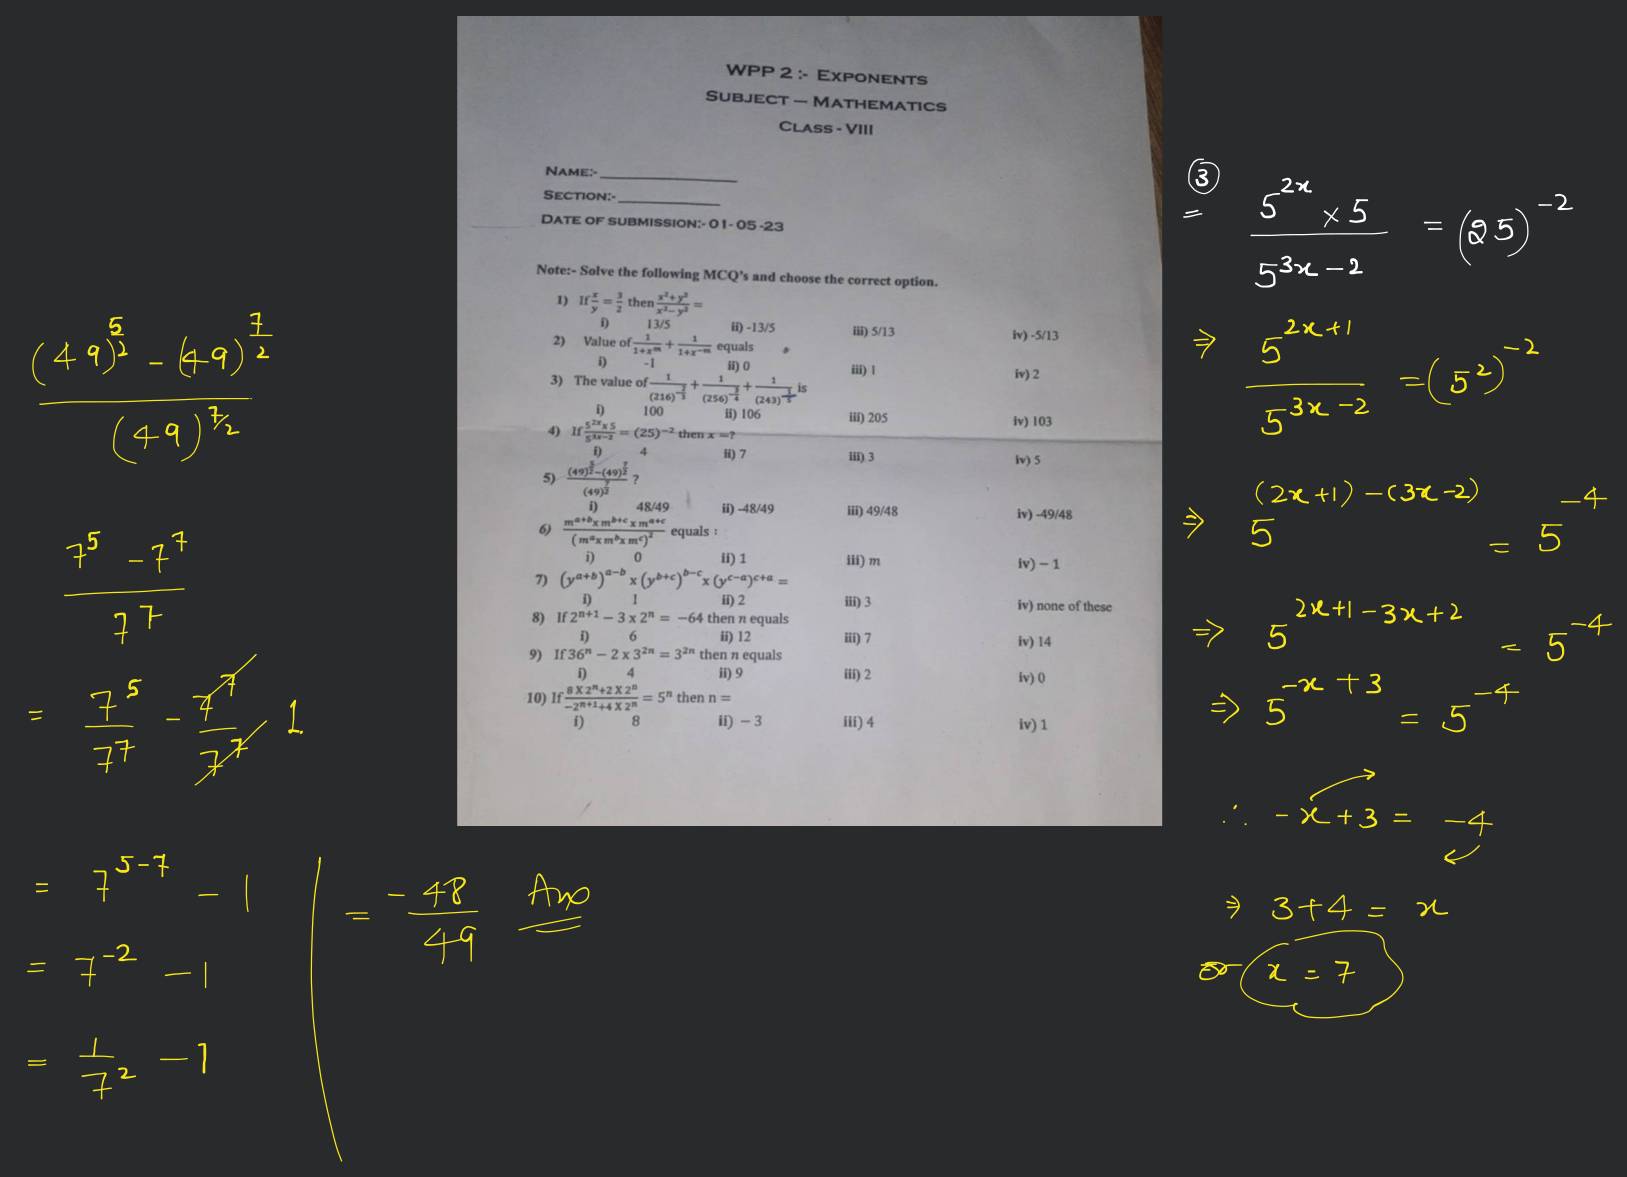 WPP 2 :- EXPONENTS
SUBJECT – MATHEMATICS
CLASS - VIII
NAME:-
SECTION:-
DATE OF SUBMISSION:- 01-05-23
Note:- Solve the following MCQ's and choose the correct option.
1) If x/y = 3/2 then (x²+y²)/(x²−y²) =
i) 13/5 ii) -13/5 iii) 5/13 iv) -5/13
2) Value of 1/(1+x^m) + 1/(1+x^−m) equals
i) -1 ii) 0 iii) 1 iv) 2
3) The value of 1/(216)^(−2/3) + 1/(256)^(−3/4) + 1/(243)^(−1/5) is
i) 100 ii) 106 iii) 205 iv) 103
4) If (5^2x x 5)/(5^(3x−2)) = (25)^−2 then x =?
i) 4 ii) 7 iii) 3 iv) 5
5) ((49)^(5/2)−(49)^(7/2))/(49)^(7/2) ?
i) 48/49 ii) -48/49 iii) 49/48 iv) -49/48
6) (m^(a+b) x m^(b+c) x m^(a+c))/(m^a x m^b x m^c)² equals :
i) 0 ii) 1 iii) m iv) – 1
7) (y^(a+b))^(a−b) x (y^(b+c))^(b−c) x (y^(c−a))^(c+a) =
i) 1 ii) 2 iii) 3 iv) none of these
8) If 2^(n+1) – 3 x 2^n = –64 then n equals
i) 6 ii) 12 iii) 7 iv) 14
9) If 36^n – 2 x 3^2n = 3^2n then n equals
i) 4 ii) 9 iii) 2 iv) 0
10) If (8 X 2^n+2 X 2^n)/(−2^(n+1)+4 X 2^n) = 5^n then n =
i) 8 ii) – 3 iii) 4 iv) 1
((49)^(5/2) - (49)^(7/2))/(49)^(7/2)
(7^5 - 7^7)/7^7
= 7^5/7^7 - 7^7/7^7 1
= 7^(5-7) - 1
= 7^-2 - 1
= 1/7^2 - 1
= -48/49 Ans
③ = (5^2x × 5)/(5^(3x-2)) = (25)^-2
⇒ 5^(2x+1)/5^(3x-2) = (5^2)^-2
⇒ 5^((2x+1)-(3x-2)) = 5^-4
⇒ 5^(2x+1-3x+2) = 5^-4
⇒ 5^(-x+3) = 5^-4
∴ -x+3 = -4
⇒ 3+4 = x
or x = 7